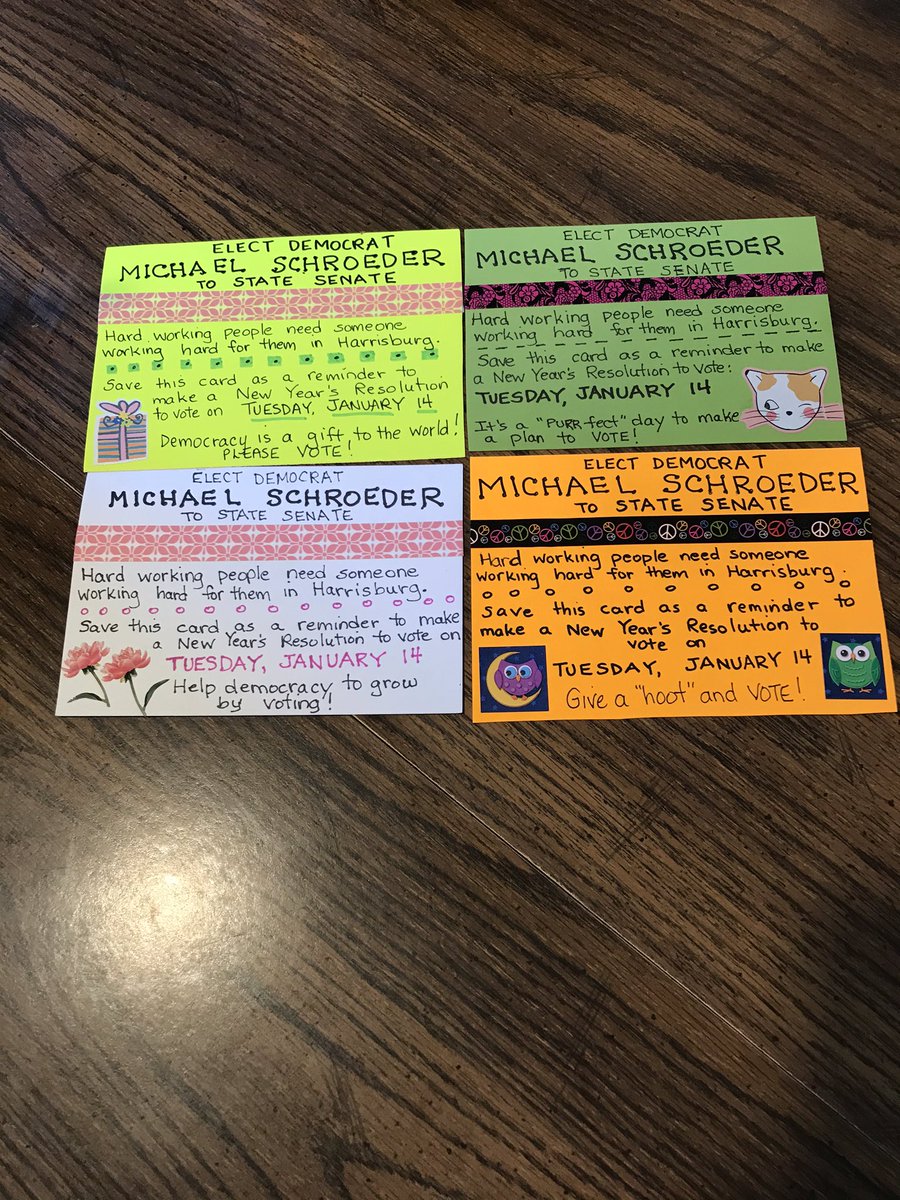 ELECT DEMOCRAT
MICHAEL SCHROEDER
TO STATE SENATE
Hard working people need someone
working hard for them in Harrisburg.
Save this card as a reminder to
make a New Year's Resolution
to vote on TUESDAY, JANUARY 14
Democracy is a gift to the world!
PLEASE VOTE!
ELECT DEMOCRAT
MICHAEL SCHROEDER
TO STATE SENATE
Hard working people need someone
working hard for them in Harrisburg.
Save this card as a reminder to make
a New Year's Resolution to vote:
TUESDAY, JANUARY 14
It's a "PURR-fect" day to make
a plan to VOTE!
ELECT DEMOCRAT
MICHAEL SCHROEDER
TO STATE SENATE
Hard working people need someone
working hard for them in Harrisburg.
Save this card as a reminder to make
a New Year's Resolution to vote on
TUESDAY, JANUARY 14
Help democracy to grow
by voting!
ELECT DEMOCRAT
MICHAEL SCHROEDER
TO STATE SENATE
Hard working people need someone
working hard for them in Harrisburg.
Save this card as a reminder to
make a New Year's Resolution to
vote on
TUESDAY, JANUARY 14
Give a "hoot" and VOTE!